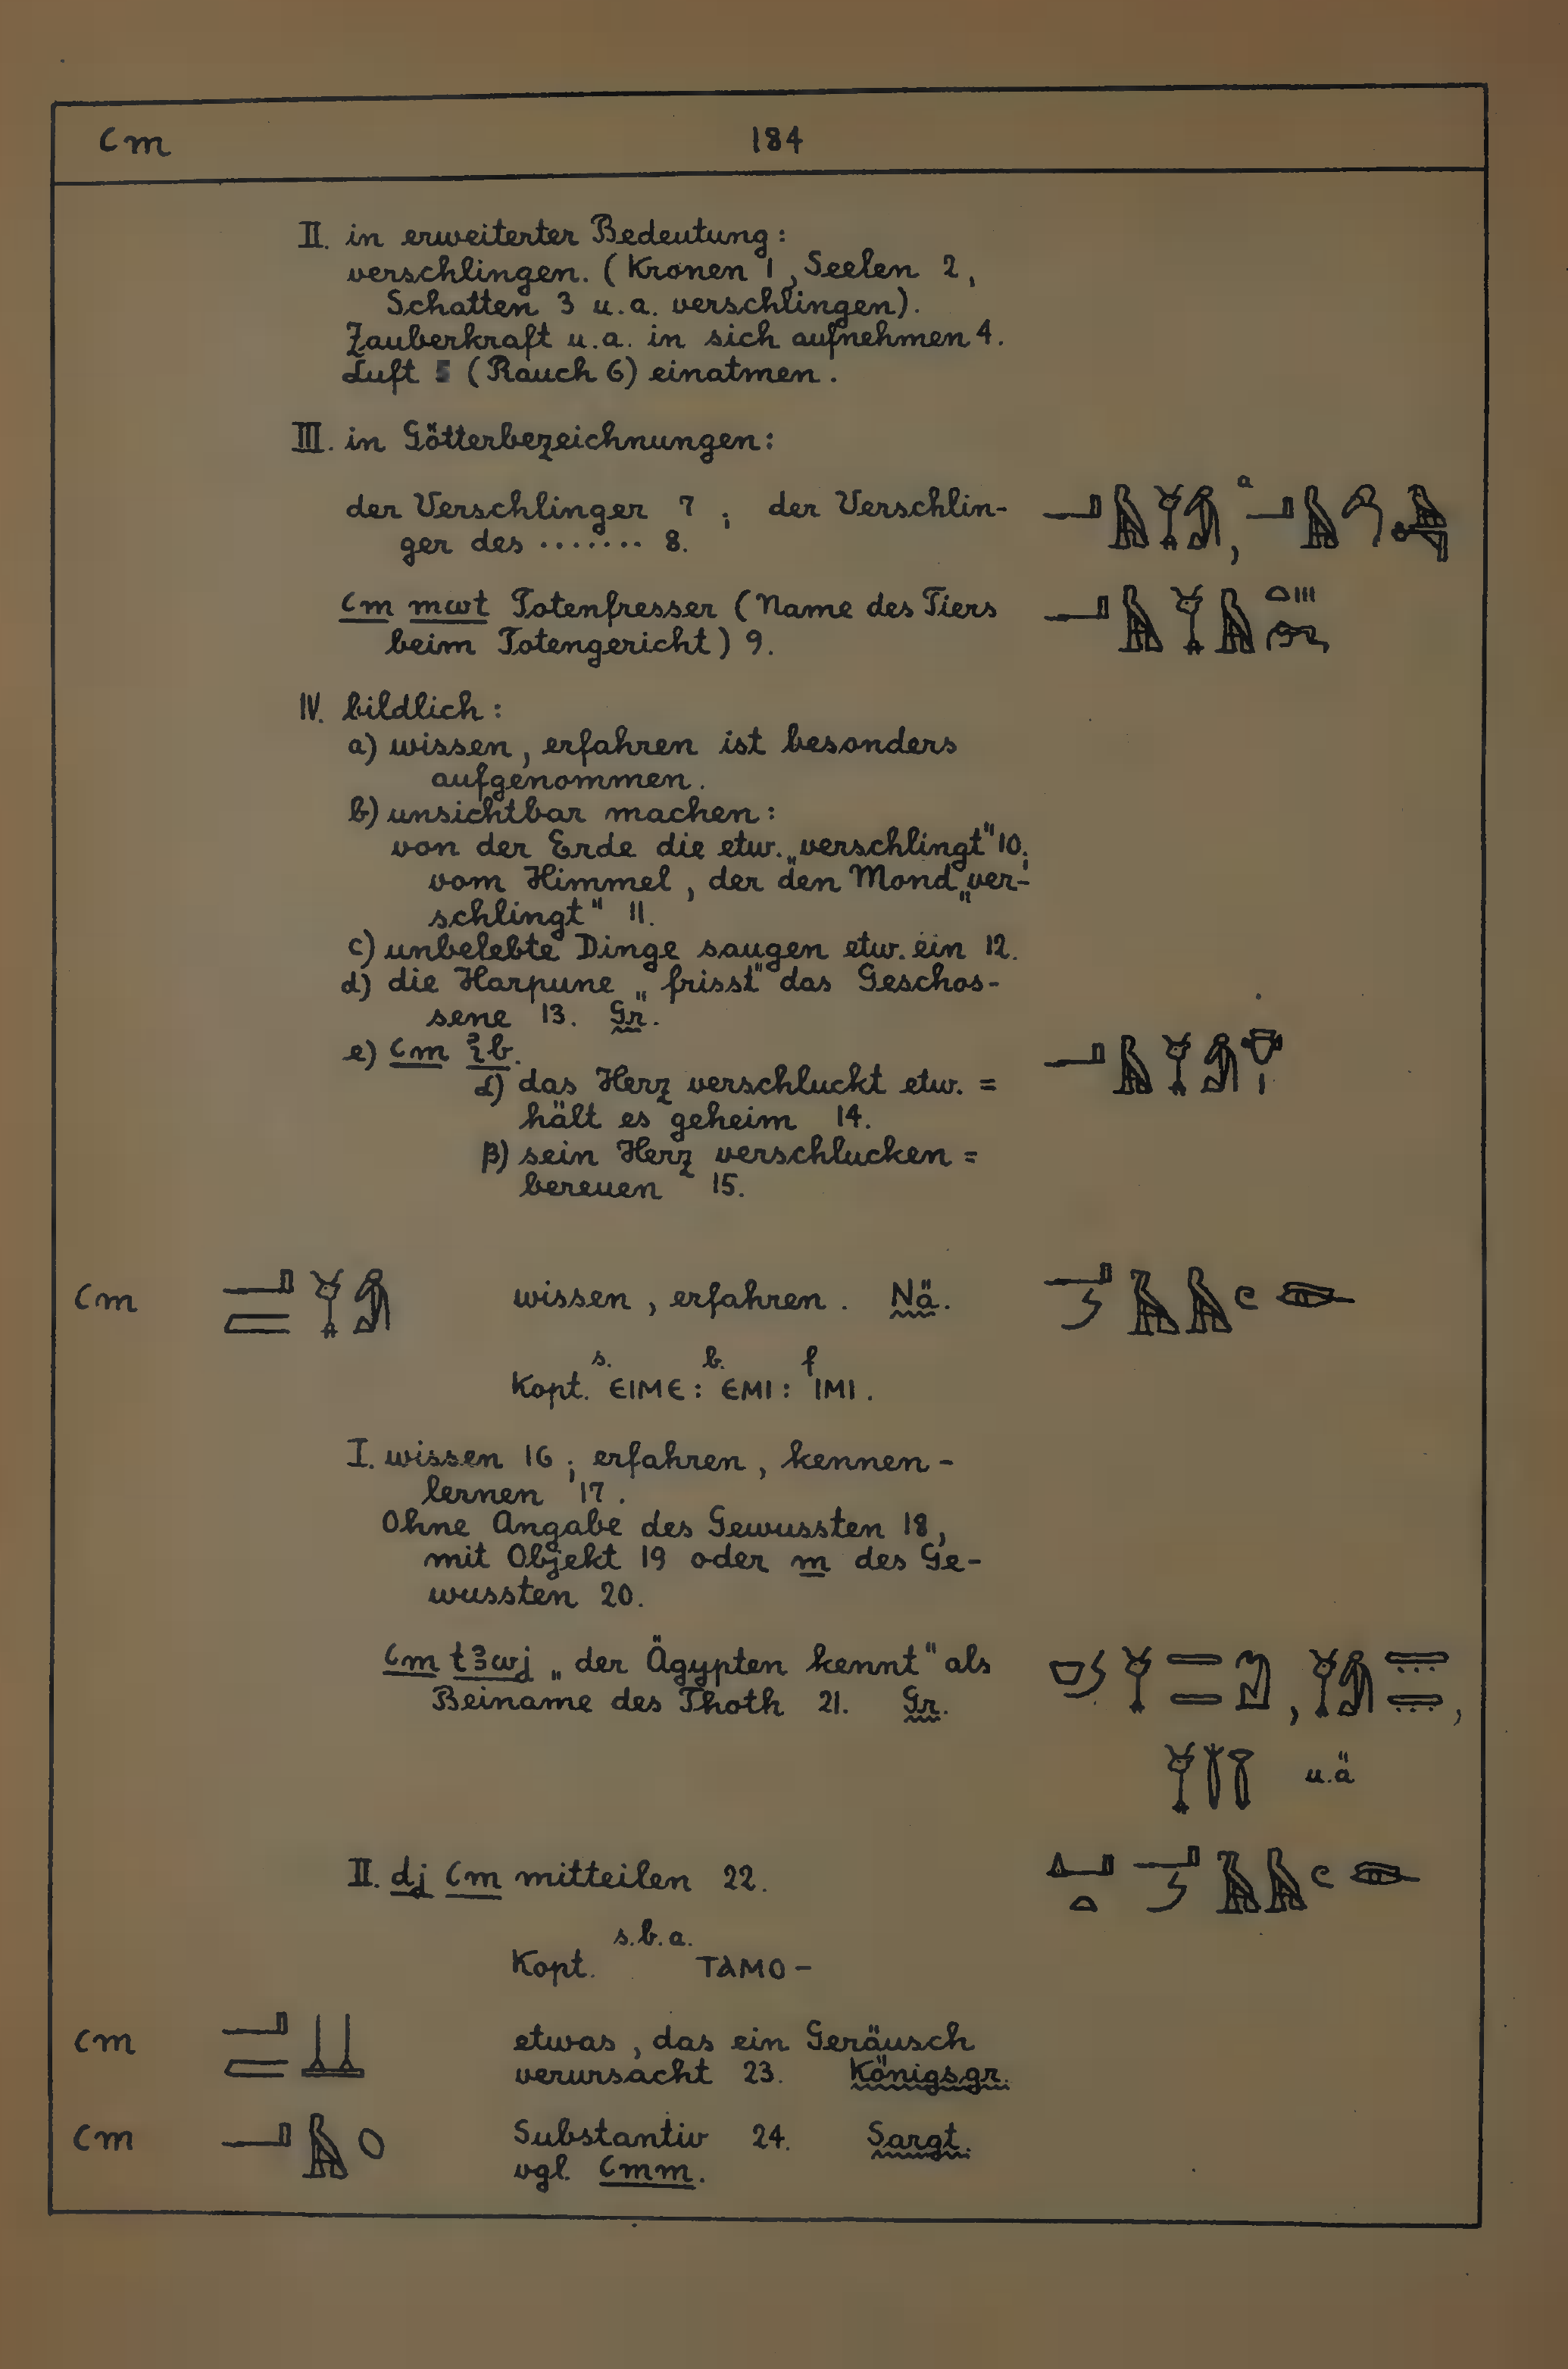 ꜥm 184
II. in erweiterter Bedeutung:
verschlingen. (Kronen 1, Seelen 2,
Schatten 3 u.a. verschlingen).
Zauberkraft u.a. in sich aufnehmen 4.
Luft 5 (Rauch 6) einatmen.
III. in Götterbezeichnungen:
der Verschlinger 7; der Verschlin-
ger des ....... 8.
ꜥm mwt Totenfresser (Name des Tiers
beim Totengericht) 9.
IV. bildlich:
a) wissen, erfahren ist besonders
aufgenommen.
b) unsichtbar machen:
von der Erde die etw. „verschlingt" 10;
vom Himmel, der den Mond „ver-
schlingt" 11.
c) unbelebte Dinge saugen etw. ein 12.
d) die Harpune „frisst" das Geschos-
sene 13. Gr.
e) ꜥm ı͗b.
α) das Herz verschluckt etw. =
hält es geheim 14.
β) sein Herz verschlucken =
bereuen 15.
ꜥm wissen, erfahren. Nä.
s. b. f
Kopt. ⲉⲓⲙⲉ: ⲉⲙⲓ: ⲓⲙⲓ.
I. wissen 16; erfahren, kennen-
lernen 17.
Ohne Angabe des Gewussten 18,
mit Objekt 19 oder m des Ge-
wussten 20.
ꜥm tꜣwj „der Ägypten kennt" als
Beiname des Thoth 21. Gr.
u.ä
II. dj ꜥm mitteilen 22.
s.b.a.
Kopt. ⲧⲁⲙⲟ-
ꜥm etwas, das ein Geräusch
verursacht 23. Königsgr.
ꜥm Substantiv 24. Sargt.
vgl. ꜥmm.